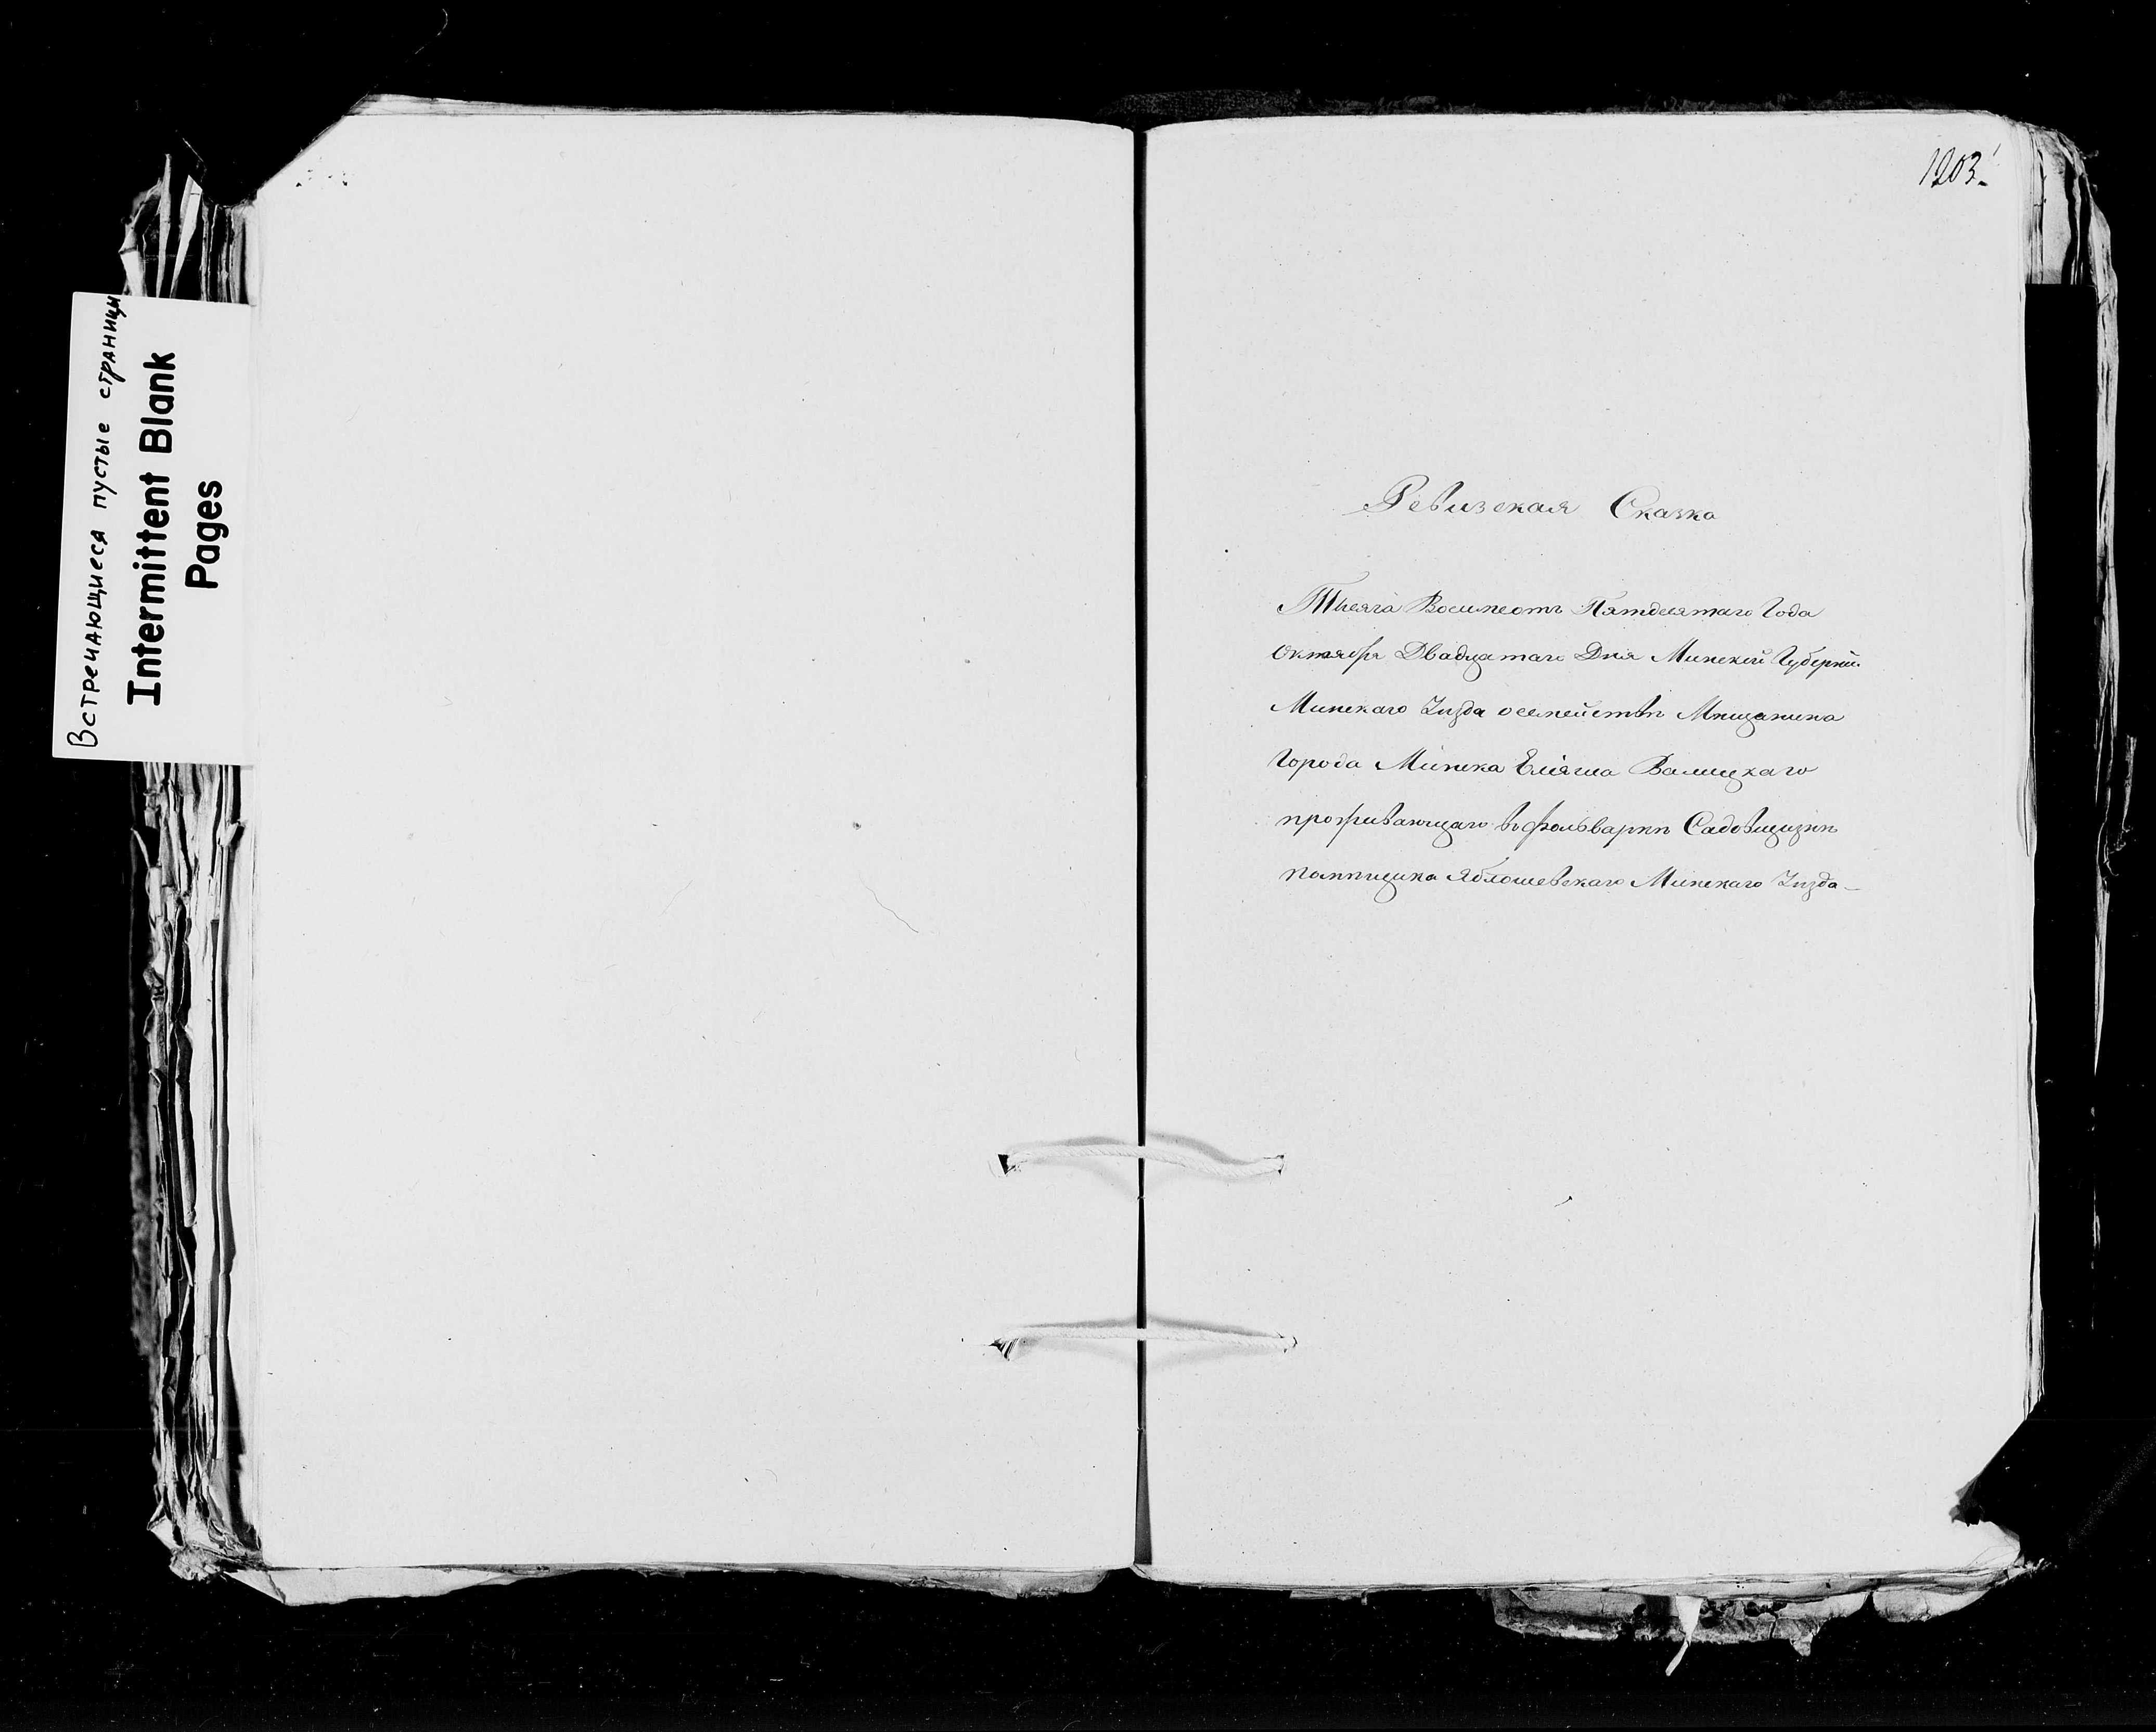 Встречающиеся пустые страницы
Intermittent Blank
Pages
1203.
Ревизская Сказка
Тысяча Восимсотъ Пятдесятаго Года
Октября Двадцатаго Дня Минской Губерніи
Минскаго Уѣзда о семействѣ Мѣщанина
Города Минска Еліяша Валицкаго
проживающаго въ фольваркѣ Садовщизнѣ
помѣщика Яблошевскаго Минскаго Уѣзда —